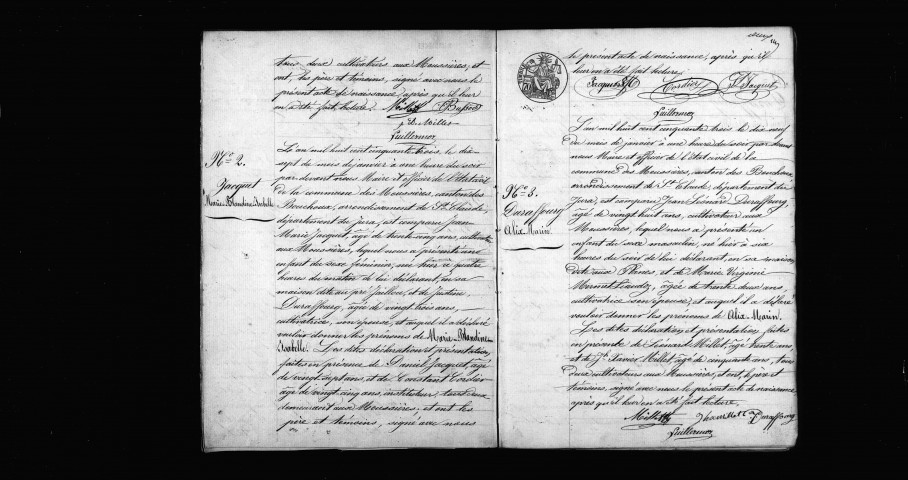 tous deux cultivateurs aux Moussières, et
ont, les père et témoins, signé avec nous le
présent acte de naissance après qu'il leur
en a été fait lecture. Millet Buffard
p. le Millet
Guillermoz
N° 2.
Jacquet
Marie-Blandine-Isabelle
L'an mil huit cent cinquante trois, le dix
sept du mois de janvier à une heure du soir
par devant nous Maire et officier de l'état civil
de la commune des Moussières, canton des
Bouchoux, arrondissement de St Claude,
département du Jura, est comparu Jean
Marie Jacquet, âgé de trente cinq ans, cultivateur
aux Moussières, lequel nous a présenté une
enfant du sexe féminin, née hier à quatre
heures du matin de lui déclarant, en sa
maison dite au pré Jaillon, et de Justine
Duraffourg, âgée de vingt trois ans,
cultivatrice, son épouse, et auquel il a déclaré
vouloir donner les prénoms de Marie-Blandine-
Isabelle. Les dites déclaration et présentation
faites en présence de Daniel Jacquet, âgé
de vingt sept ans, et de Constant Cordier
âgé de vingt cinq ans, instituteur, tous deux
demeurant aux Moussières, et ont les
père et témoins, signé avec nous
le présent acte de naissance, après qu'il
leur en a été fait lecture.
Jacquet Cordier Jacquet
Guillermoz
N° 3.
Duraffourg
Alix-Marin.
L'an mil huit cent cinquante trois le dix neuf
du mois de janvier à une heure du soir par devant
nous Maire et officier de l'état civil de la
commune des Moussières, canton des Bouchoux
arrondissement de St Claude, département du
Jura, est comparu Jean Lienard Duraffourg,
âgé de vingt huit ans, cultivateur aux
Moussières, lequel nous a présenté un
enfant du sexe masculin, né hier à six
heures du soir de lui déclarant, en sa maison
dite aux Plaines et de Marie Virginie
Mermet, âgée de trente deux ans,
cultivatrice son épouse, et auquel il a déclaré
vouloir donner les prénoms de Alix-Marin.
Les dites déclaration et présentation, faites
en présence de Lienard Millet, âgé trente ans
et de Jh Xavier Millet âgé de cinquante ans, tous
deux cultivateurs aux Moussières, et ont, le père et
témoins, signé avec nous le présent acte de naissance
après qu'il leur en a été fait lecture.
Millet Duraffourg
Guillermoz